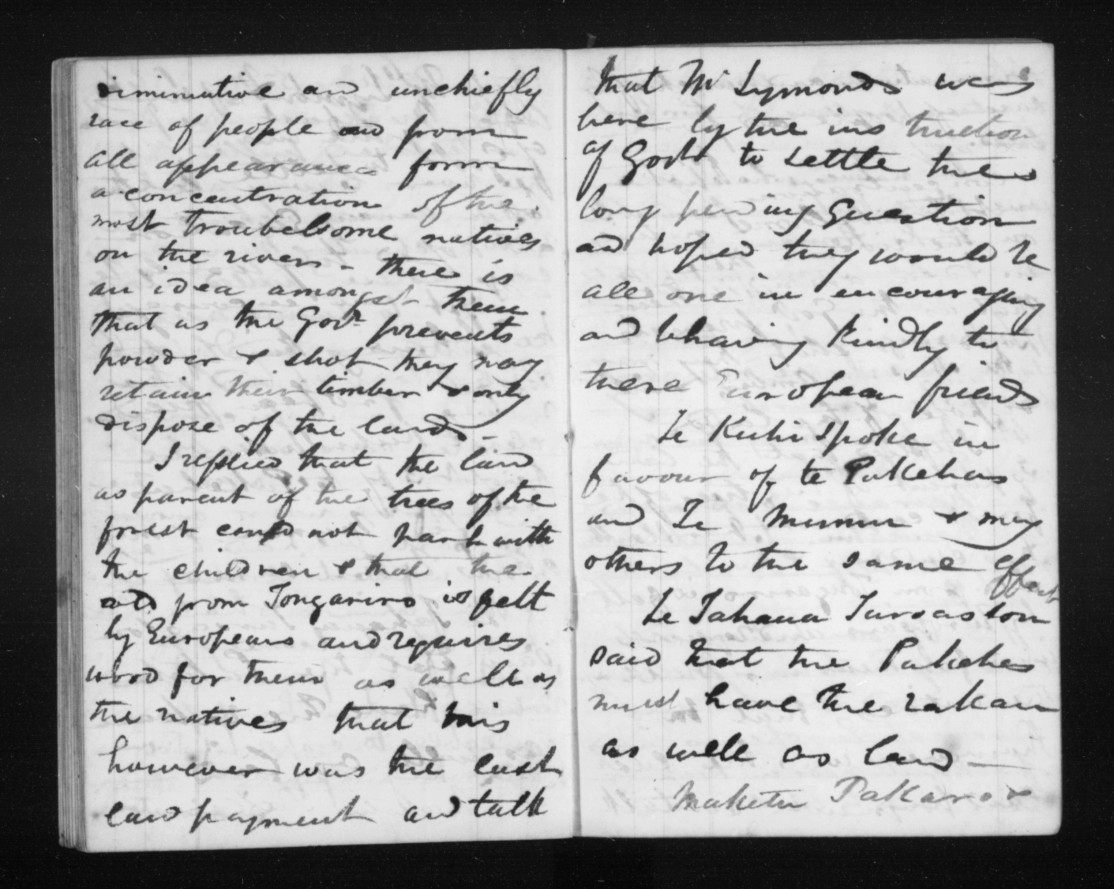 diminutive and unchiefly
race of people and from
all appearances form
a concentration of the
most troubelsome natives
on the river - there is
an idea amongst them
that as the Govt prevents
powder & shot they may
retain their timber & only
dispose of the land -
I replied that the land
as parent of the trees of the
forest could not part with
the children & that the
from Tongariro is felt
by Europeans and requires
wood for them as well as
the natives that this
however was the last
land payment and talk
that Mr Symonds was
here by the instruction
of Govt to settle the
long pending question
and hoped they would be
all one in encouraging
and behaving kindly to
there European friends
Te Kuhi spoke in
favour of te Pakehas
and Te & many
others to the same effect
Te Tahana
said that the Pakehas
must have the rakau
as well as land -
Maketu